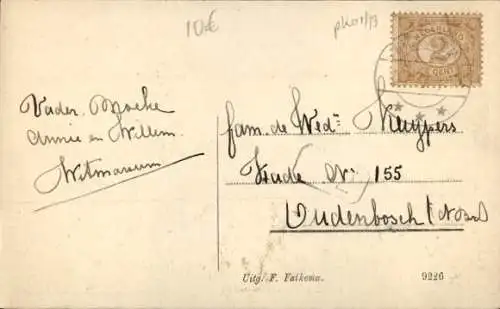 10€
NEDERLAND
2½
CENT
Vader. Moeke
Annie en Willem.
Witmarsum
fam. de Wed= Kuypers
Kade No 155
Oudenbosch (N
Uitg. F. Falkema.
9226